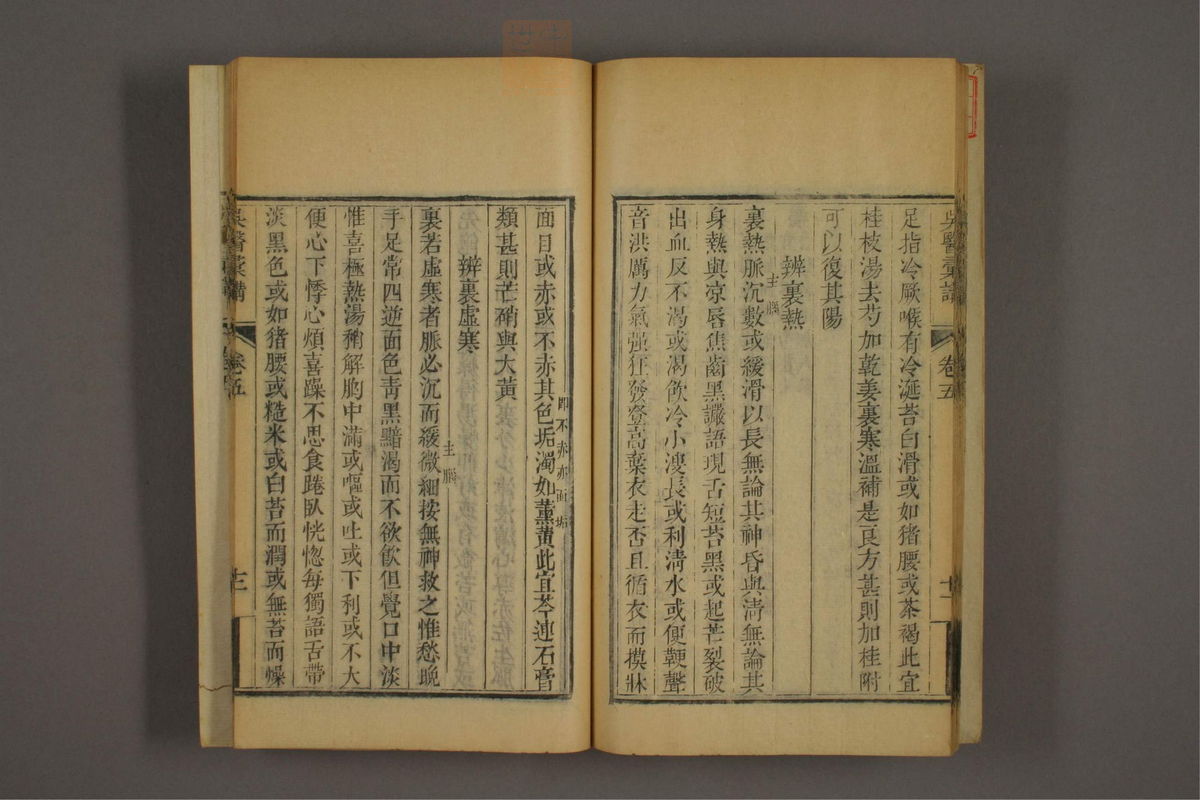 吳醫彙講
卷五
十二
足指冷厥喉有冷涎苔白滑或如猪腰或茶褐此宜
桂枝湯去芍加乾姜裏寒溫補是良方甚則加桂附
可以復其陽
辨裏熱
裏熱脈沉數或緩滑以長無論其神昏與清無論其
主腦
身熱與凉唇焦齒黑讝語現舌短苔黑或起芒裂破
出血反不渴或渴飲冷小溲長或利清水或便鞕聲
音洪厲力氣强狂發登高棄衣走否且循衣而摸牀
面目或赤或不赤其色垢濁如薰黃此宜芩連石膏
即不赤亦面垢
類甚則芒硝與大黃
辨裏虛寒
裏若虛寒者脈必沉而緩微細按無神救之惟愁晚
主腦
手足常四逆面色靑黑黯渴而不欲飲但覺口中淡
惟喜極熱湯稍解胸中滿或嘔或吐或下利或不大
便心下悸心煩喜躁不思食踡臥恍惚每獨語舌帶
淡黑色或如猪腰或糙米或白苔而潤或無苔而燥
吳醫彙講
卷五
十三